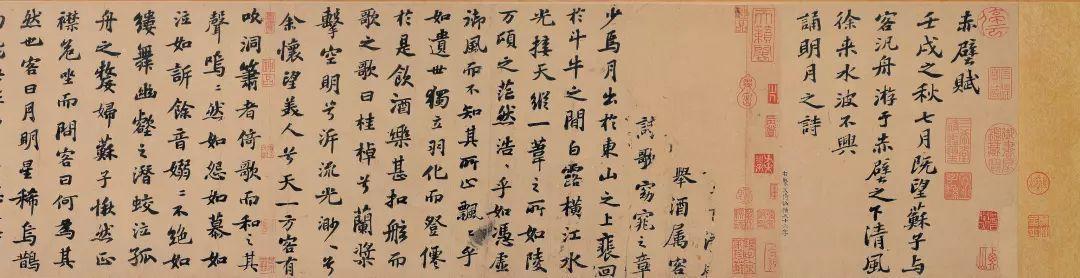 赤壁賦
壬戌之秋七月既望蘇子与
客汎舟游于赤壁之下清風
徐来水波不興
誦明月之詩
舉酒属客
歌窈窕之章
少焉月出於東山之上裴回
於斗牛之間白露橫江水
光接天縱一葦之所如陵
万頃之茫然浩〻乎如憑虛
御風而不知其所止飄〻乎
如遺世獨立羽化而登僊
於是飲酒樂甚扣舷而
歌之歌曰桂棹兮蘭槳
擊空明兮泝流光渺〻兮
余懷望美人兮天一方客有
吹洞簫者倚歌而和之其
聲嗚〻然如怨如慕如
泣如訴餘音嫋〻不絕如
縷舞幽壑之潛蛟泣孤
舟之嫠婦蘇子愀然正
襟危坐而問客曰何為其
然也客曰月明星稀烏鵲